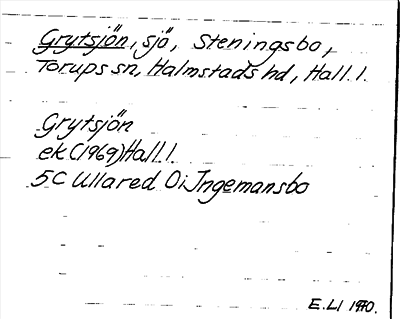 Grytsjön, sjö, Steningsbo,
Torups sn, Halmstads hd, Hall. l.
Grytsjön
ek (1969) Hall. l.
5C Ullared Oi Ingemansbo
E. LI 1970.